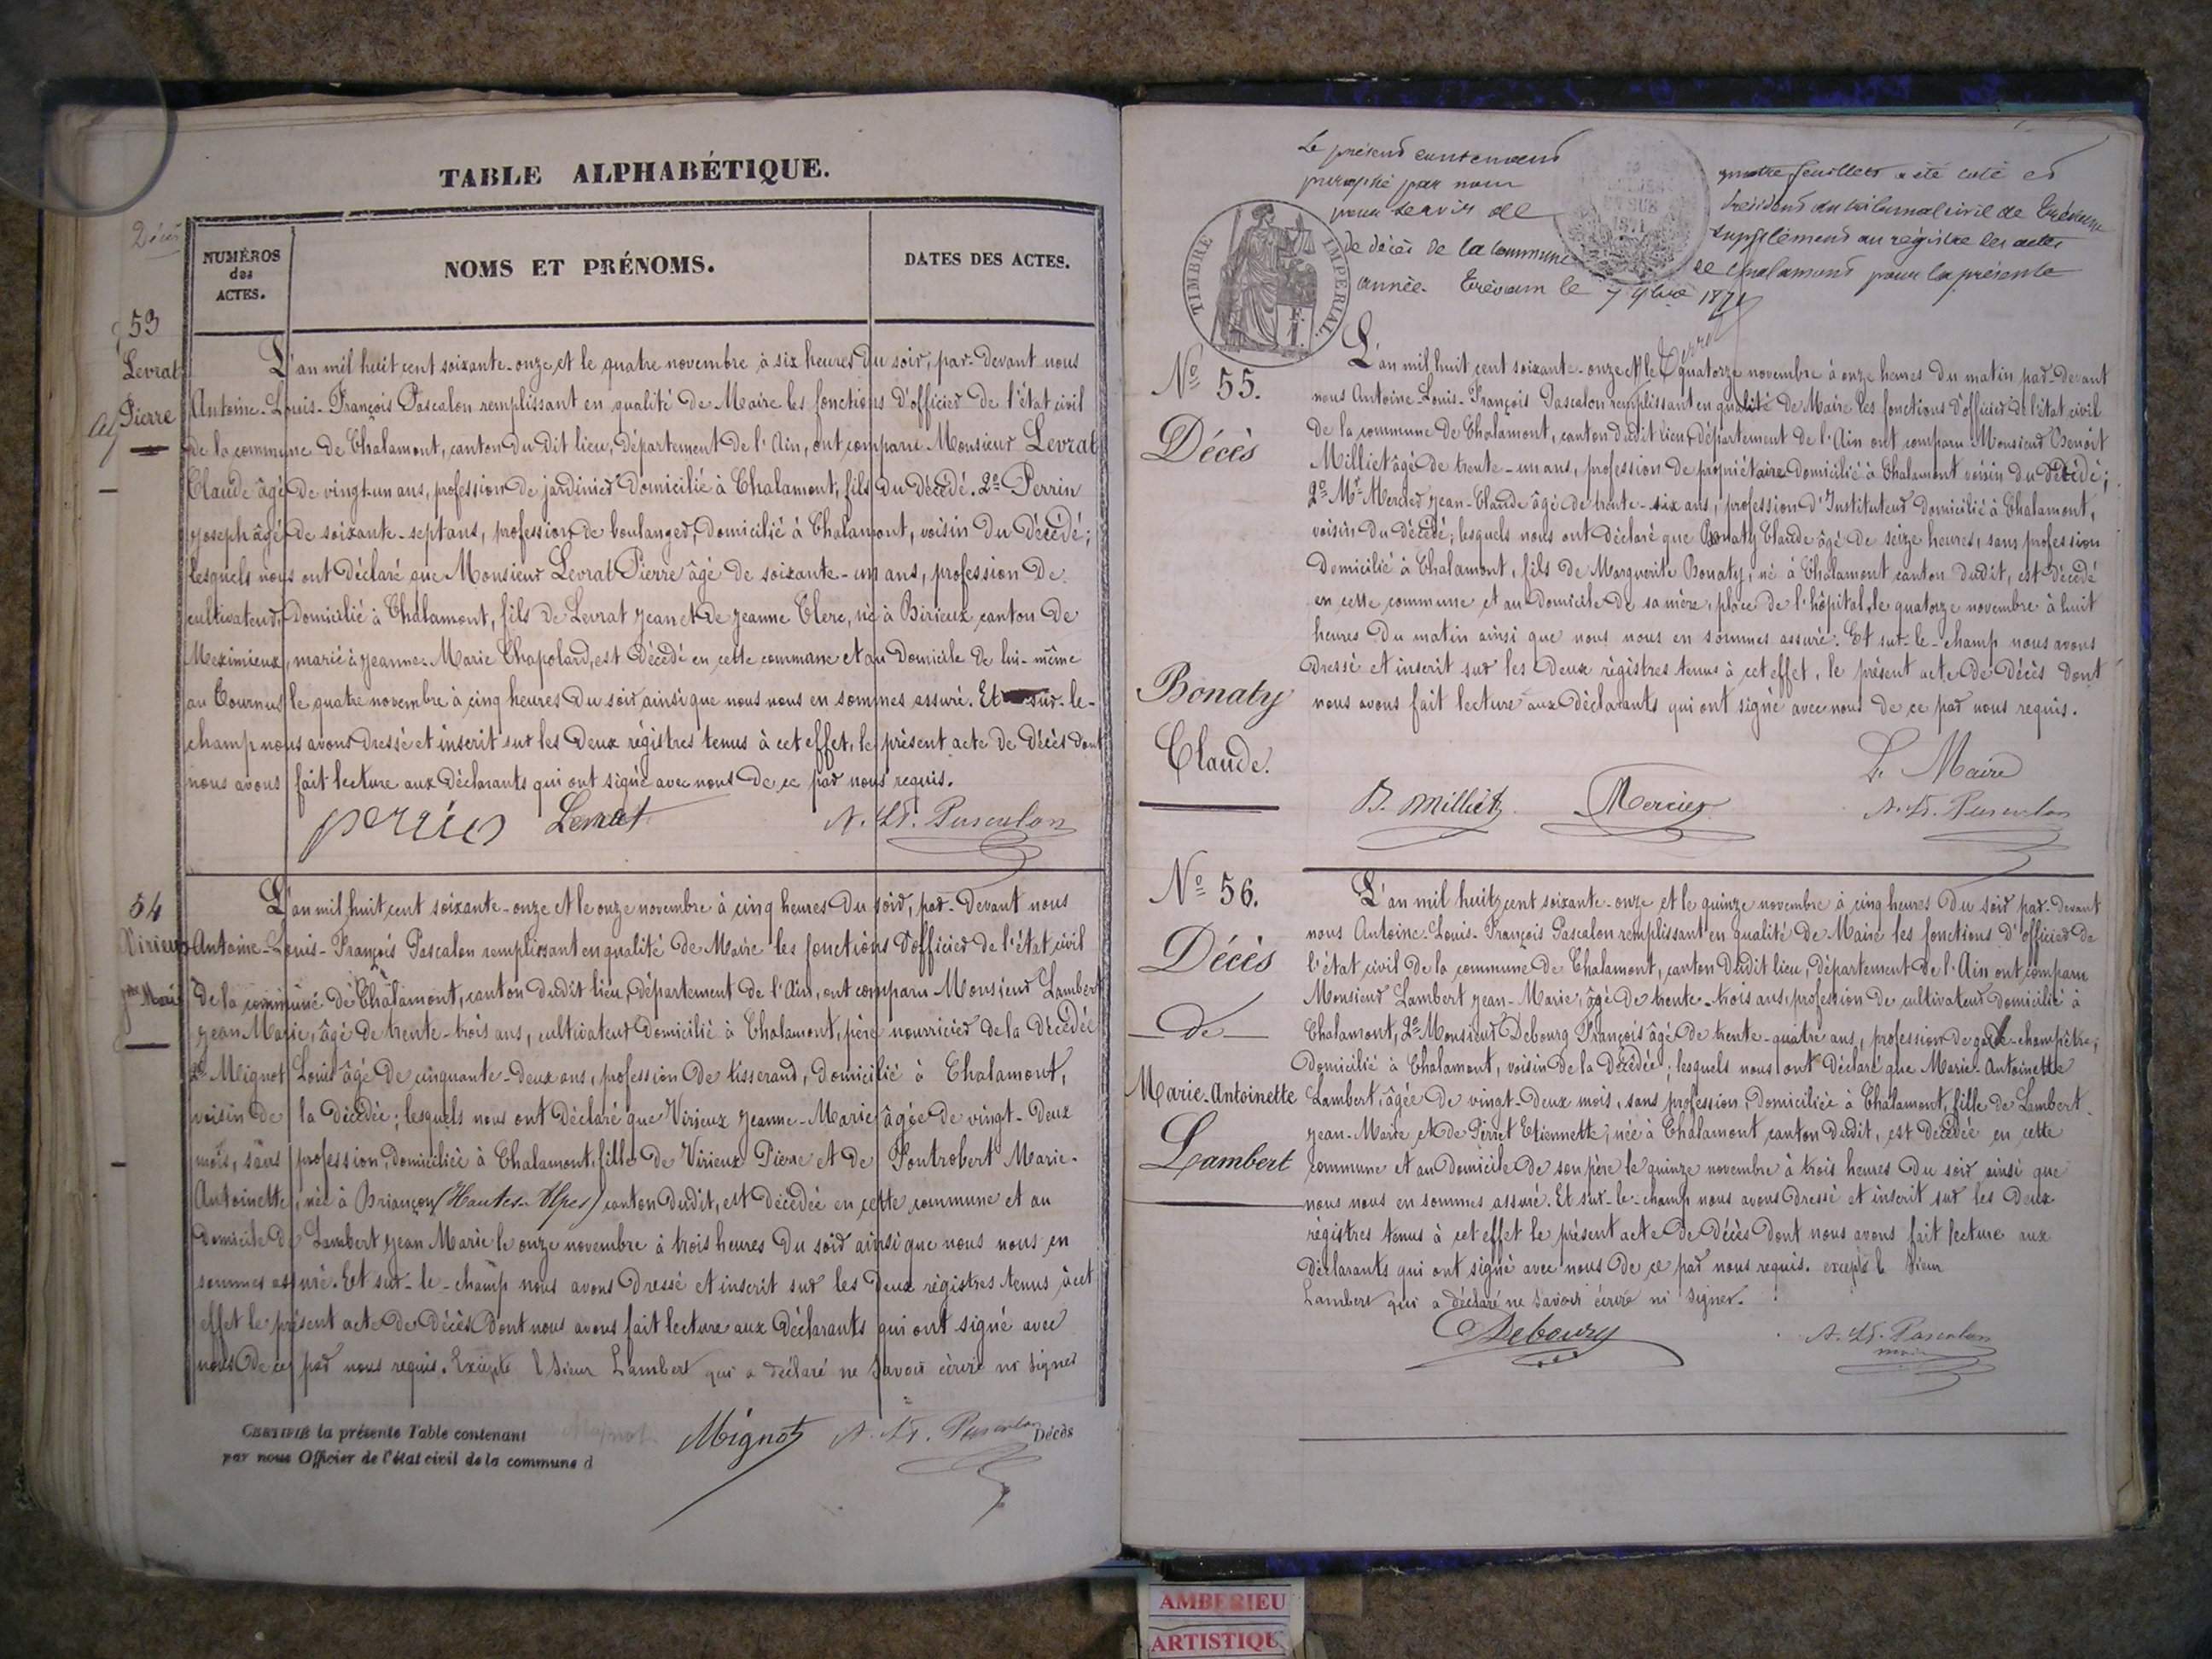 TABLE ALPHABÉTIQUE.
Décès
NUMÉROS
des
ACTES.
NOMS ET PRÉNOMS.
DATES DES ACTES.
53
Levrat
Pierre
L'an mil huit cent soixante-onze, et le quatre novembre à six heures du soir, par-devant nous
Antoine-Louis-François Pascalon remplissant en qualité de Maire les fonctions d'officier de l'état civil
de la commune de Chalamont, canton du dit lieu, département de l'Ain, ont comparu Monsieur Levrat
Claude âgé de vingt-un ans, profession de jardinier domicilié à Chalamont, fils du décédé. 2º Perrin
Joseph âgé de soixante-sept ans, profession de boulanger, domicilié à Chalamont, voisin du décédé;
lesquels nous ont déclaré que Monsieur Levrat Pierre âgé de soixante-un ans, profession de
cultivateur, domicilié à Chalamont, fils de Levrat Jean et de Jeanne Clerc, né à Birieux canton de
Meximieux, marié à Jeanne-Marie Chapolard, est décédé en cette commune et au domicile de lui-même
au Tournus le quatre novembre à cinq heures du soir, ainsi que nous nous en sommes assuré. Et sur-le-
champ nous avons dressé et inscrit sur les deux régistres tenus à cet effet, le présent acte de décès dont
nous avons fait lecture aux déclarants qui ont signé avec nous de ce par nous requis.
perrin Levrat A. Ls. Pascalon
54
Virieux
Jne Marie
L'an mil huit cent soixante-onze et le onze novembre à cinq heures du soir, par-devant nous
Antoine-Louis-François Pascalon remplissant en qualité de Maire les fonctions d'officier de l'état civil
de la commune de Chalamont, canton dudit lieu, département de l'Ain, ont comparu Monsieur Lambert
Jean Marie, âgé de trente-trois ans, cultivateur domicilié à Chalamont, père nourricier de la décédée
2º Mignot Louis âgé de cinquante-deux ans, profession de tisserand, domicilié à Chalamont,
voisin de la décédée; lesquels nous ont déclaré que Virieux Jeanne-Marie âgée de vingt-deux
mois, sans profession, domiciliée à Chalamont, fille de Virieux Pierre et de Pontrobert Marie-
Antoinette, née à Briançon (Hautes-Alpes) canton dudit, est décédée en cette commune et au
domicile de Lambert Jean Marie le onze novembre à trois heures du soir ainsi que nous nous en
sommes assuré. Et sur-le-champ nous avons dressé et inscrit sur les deux régistres tenus à cet
effet le présent acte de décès dont nous avons fait lecture aux déclarants qui ont signé avec
nous de ce par nous requis. Excepté l sieur Lambert qui a déclaré ne savoir écrire ni signer
CERTIFIÉ la présente Table contenant
Décès
par nous Officier de l'état civil de la commune d
Mignot A. Ls. Pascalon
Le présent contenant quatre feuillets a été coté et
paraphé par nous Président du tribunal civil de Trévoux
pour servir de supplément au régistre des actes
de décès de la commune de Chalamont pour la présente
année. Trévoux le 7 9bre 1871
TIMBRE IMPÉRIAL
Nº 55.
Décès
Bonaty
Claude.
L'an mil huit cent soixante-onze et le quatorze novembre à onze heures du matin par-devant
nous Antoine-Louis-François Pascalon remplissant en qualité de Maire les fonctions d'officier de l'état civil
de la commune de Chalamont, canton dudit lieu, département de l'Ain ont comparu Monsieur Benoît
Milliet âgé de trente-un ans, profession de propriétaire domicilié à Chalamont voisin du décédé;
2º Mr Mercier Jean-Claude âgé de trente-six ans, profession d'Instituteur domicilié à Chalamont,
voisin du décédé; lesquels nous ont déclaré que Bonaty Claude âgé de seize heures, sans profession
domicilié à Chalamont, fils de Marguerite Bonaty, né à Chalamont canton dudit, est décédé
en cette commune et au domicile de sa mère, place de l'hôpital, le quatorze novembre à huit
heures du matin ainsi que nous nous en sommes assuré. Et sur-le-champ nous avons
dressé et inscrit sur les deux régistres tenus à cet effet, le présent acte de décès dont
nous avons fait lecture aux déclarants qui ont signé avec nous de ce par nous requis.
Le Maire
B. Milliet Mercier A. Ls. Pascalon
Nº 56.
Décès
de
Marie-Antoinette
Lambert
L'an mil huit cent soixante-onze et le quinze novembre à cinq heures du soir par-devant
nous Antoine-Louis-François Pascalon remplissant en qualité de Maire les fonctions d'officier de
l'état civil de la commune de Chalamont, canton dudit lieu, département de l'Ain ont comparu
Monsieur Lambert Jean-Marie, âgé de trente-trois ans, profession de cultivateur domicilié à
Chalamont, 2º Monsieur Debourg François âgé de trente-quatre ans, profession de garde-champêtre,
domicilié à Chalamont, voisin de la décédée; lesquels nous ont déclaré que Marie-Antoinette
Lambert, âgée de vingt-deux mois, sans profession, domiciliée à Chalamont, fille de Lambert
Jean-Marie et de Perret Etiennette, née à Chalamont canton dudit, est décédée en cette
commune et au domicile de son père le quinze novembre à trois heures du soir ainsi que
nous nous en sommes assuré. Et sur-le-champ nous avons dressé et inscrit sur les deux
régistres tenus à cet effet le présent acte de décès dont nous avons fait lecture aux
déclarants qui ont signé avec nous de ce par nous requis. excepté le sieur
Lambert qui a déclaré ne savoir écrire ni signer.
Debourg A. Ls. Pascalon
maire
AMBERIEU
ARTISTIQU